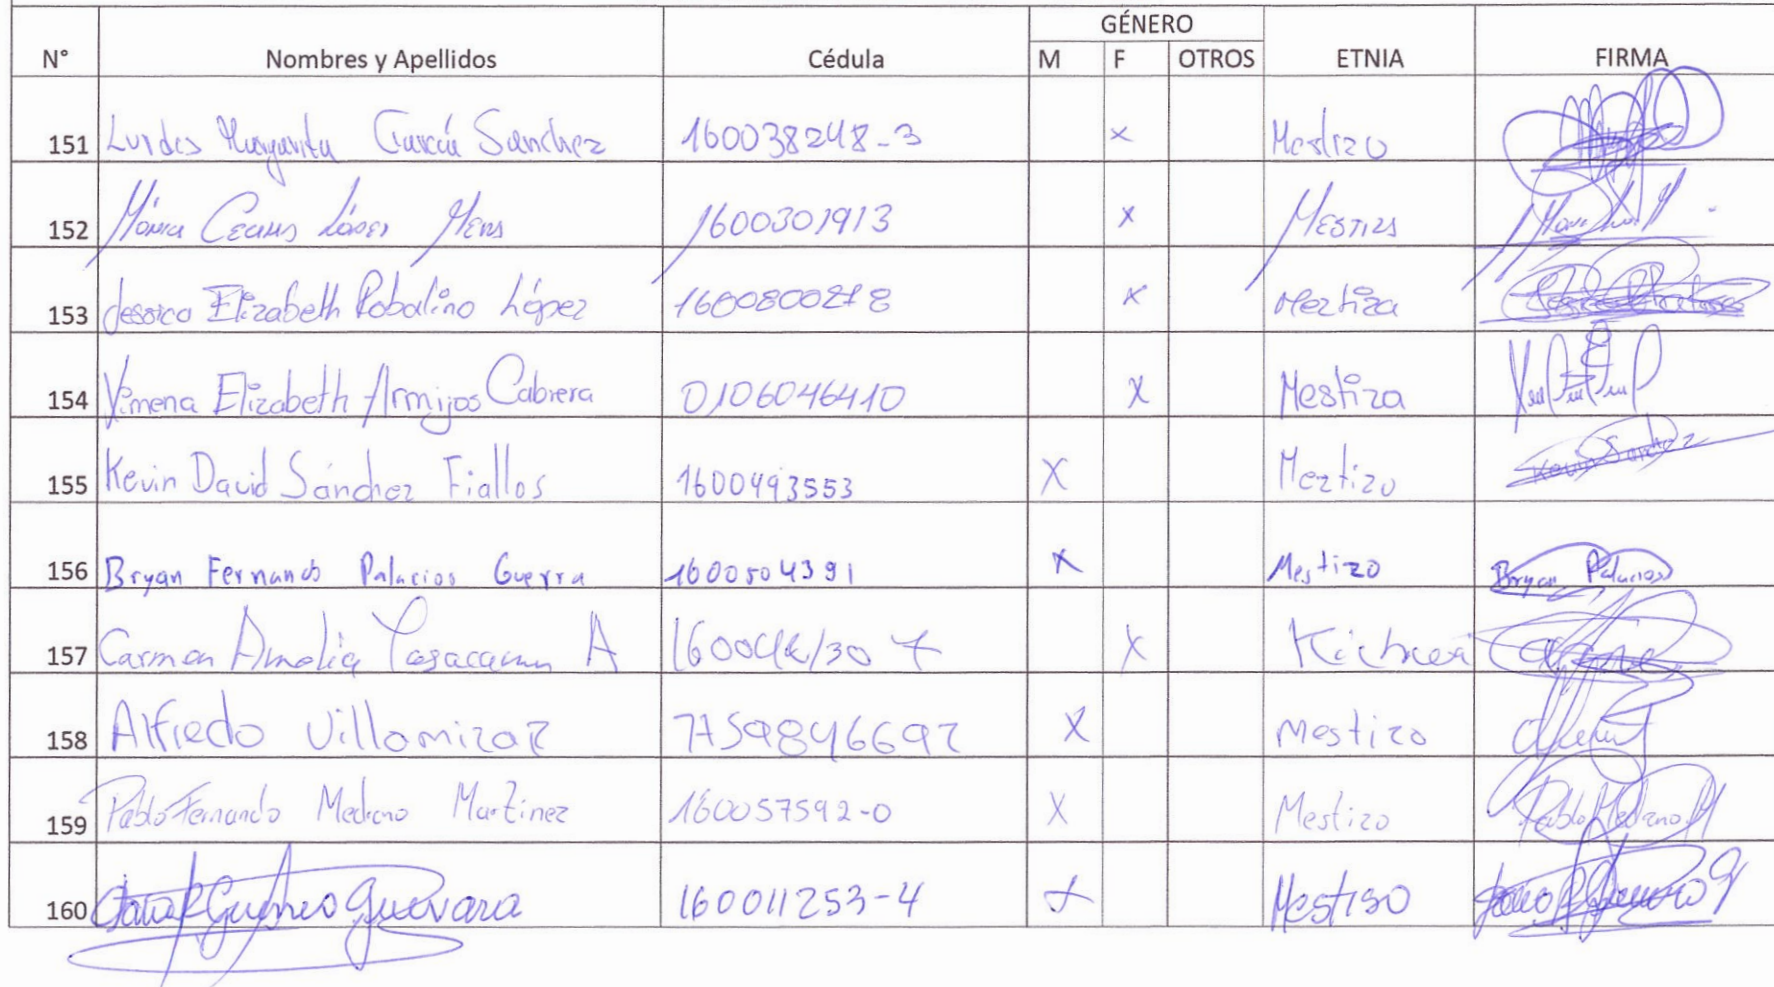 GÉNERO
N° Nombres y Apellidos Cédula M F OTROS ETNIA FIRMA
151 Lurdes Margarita García Sanchez 160038248-3 x Mestizo
152 Mónica López Mena 1600301913 x Mestiza
153 Jessica Elizabeth Robalino López x Meztiza
154 Ximena Elizabeth Armijos Cabrera 0106046410 x Mestiza
155 Kevin David Sánchez Fiallos 1600493553 X Meztizo Kevin Sanchez
156 Bryan Fernando Palacios Guerra 1600504391 x Mestizo Bryan Palacios
157 Carmen Amelia A X
158 Alfredo Villamizar X Mestizo
159 Pablo Fernando Medrano Martinez 160057592-0 X Mestizo Pablo Medrano M
160 Guevara 160011253-4 x Mestiso